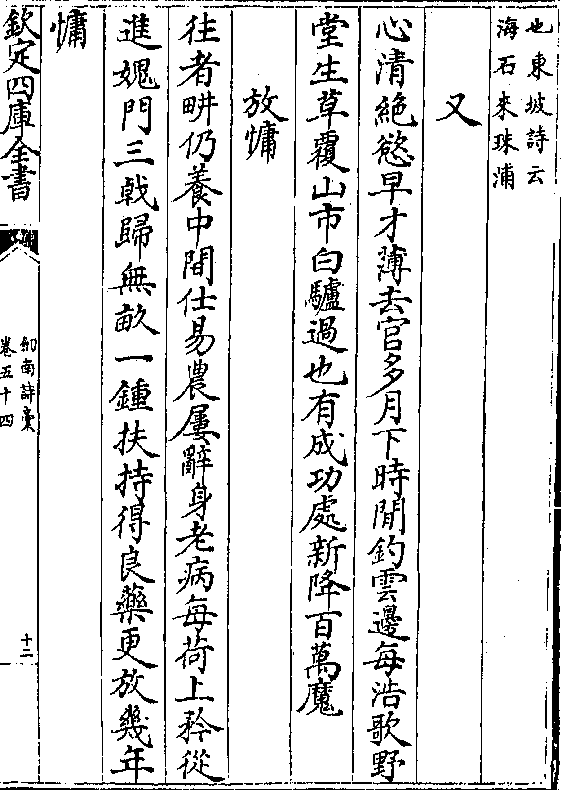 也東坡詩云
海石來珠浦
又
心清絶慾早才薄去官多月下時閒釣雲邊每浩歌野
堂生草覆山市白驢過也有成功處新降百萬魔
放慵
往者畊仍養中間仕易農屢辭身老病每荷上矜從
進媿門三戟歸無畝一鍾扶持得良藥更放幾年
慵
欽定四庫全書
卷五十四
十二